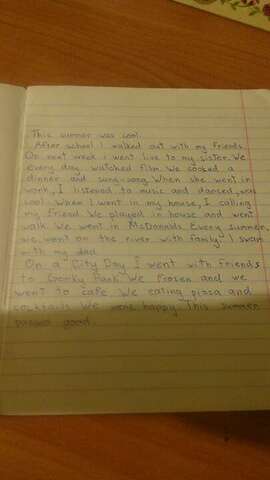 This summer was cool.
After school I walked out with my friends.
On next week i went live to my sister. We
every day watched film. We cooked a
dinner and sung-song. When she went in
work, I listened to music and danced, was
cool. When I went in my house, I calling
my friend. We played in house and went
walk. We went in McDonalds. Every summer,
we went on the river with family. I swam
with my dad.
On a "City Day" I went with friends
to Gorky Park. We frosen and we
went to cafe. We eating pizza and
cocktails. We were happy. This summer
passed good.